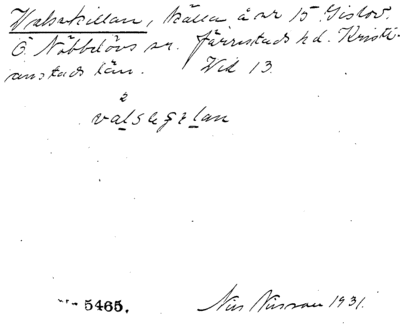 Valsakillan, källa å nr 15 Gislöv.
Ö Nöbbelövs sn. Järrestads hd. Kristi-
anstads län. Vid 13.
2
valsegilan
5465. Nils Nilsson 1931.